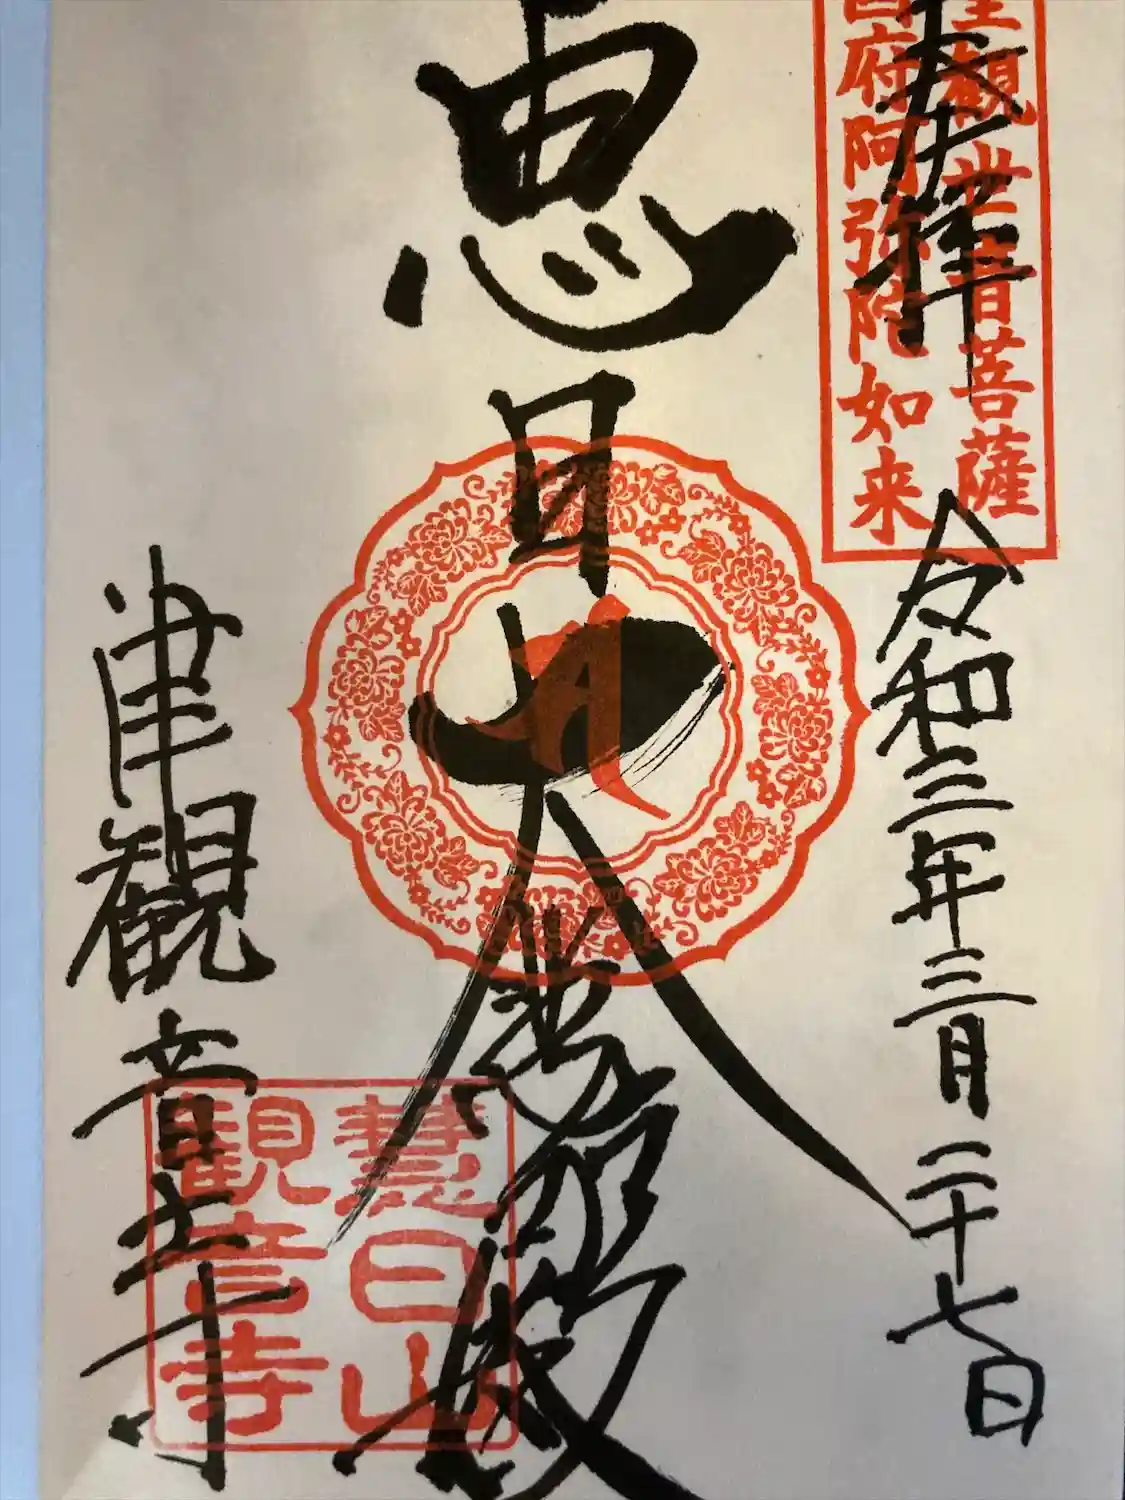 奉拝
令和三年三月二十七日
聖観世音菩薩
国府阿弥陀如来
恵日大
津観音寺
慧日山
観音寺